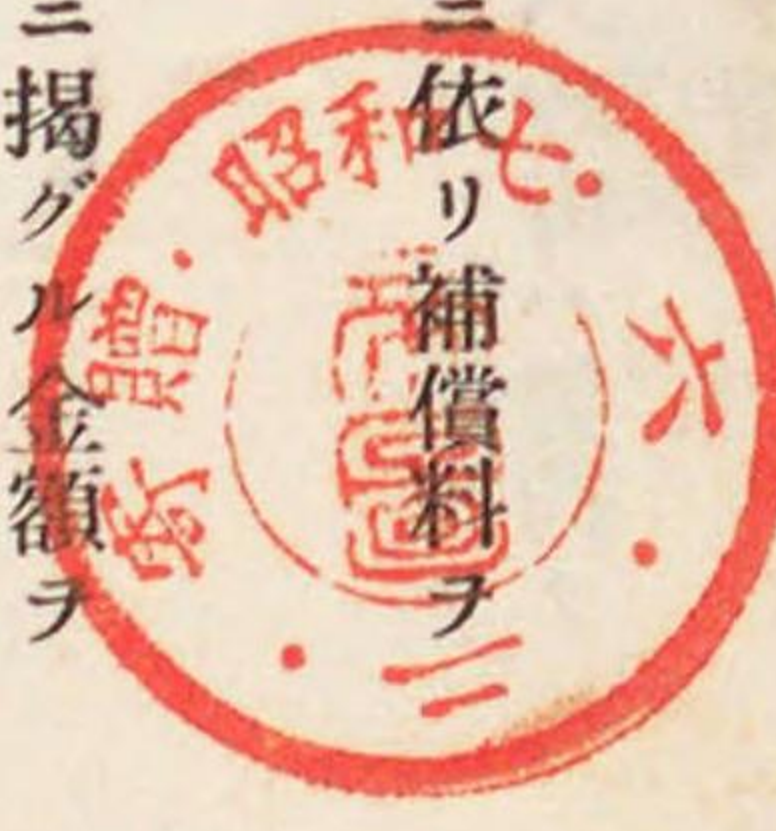 ニ依リ補償料ヲ
ニ掲グル金額ヲ
寄贈・昭和七・六・二・